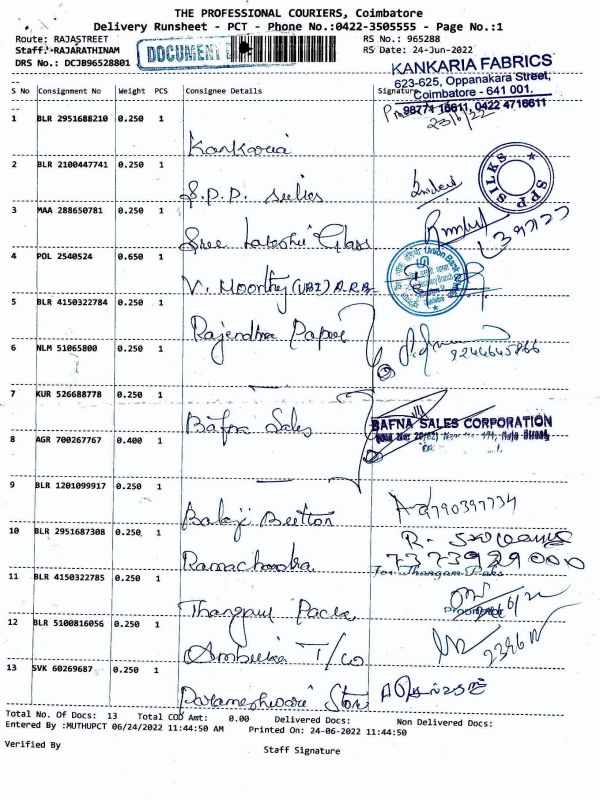 THE PROFESSIONAL COURIERS, Coimbatore
Delivery Runsheet - PCT - Phone No.:0422-3505555 - Page No.:1
Route: RAJASTREET
RS No.: 965288
Staff.-RAJARATHINAM
RS Date: 24-Jun-2022
DRS No.: DCJ896528801
DOCUMENT
KANKARIA FABRICS
623-625, Oppanakara Street,
Coimbatore - 641 001.
98774 16611, 0422 4716611
S No Consignment No Weight PCS Consignee Details Signature
23/6/22
1 BLR 2951688210 0.250 1
Kankaria
2 BLR 2100447741 0.250 1
S.P.P. silks
SPP SILKS
3 MAA 288650781 0.250 1
Sree Lakshmi Glass
4 POL 2540524 0.650 1
V. Moorthy (UBI) A.R.B
Union Bank
5 BLR 4150322784 0.250 1
Rajendra Paper
6 NLM 51065800 0.250 1
9244645866
7 KUR 526688778 0.250 1
Bafna Sales
BAFNA SALES CORPORATION
8 AGR 700267767 0.400 1
9 BLR 1201099917 0.250 1
Balaji Button
9790397734
10 BLR 2951687308 0.250 1
Ramachandra
R.
7373929000
11 BLR 4150322785 0.250 1
For Thangam Paks
Thangam Packs
12 BLR 5100816056 0.250 1
Ambika T/co
13 SVK 60269687 0.250 1
Parameshwari Store
Total No. Of Docs: 13 Total COD Amt: 0.00 Delivered Docs: Non Delivered Docs:
Entered By :MUTHUPCT 06/24/2022 11:44:50 AM Printed On: 24-06-2022 11:44:50
Verified By
Staff Signature